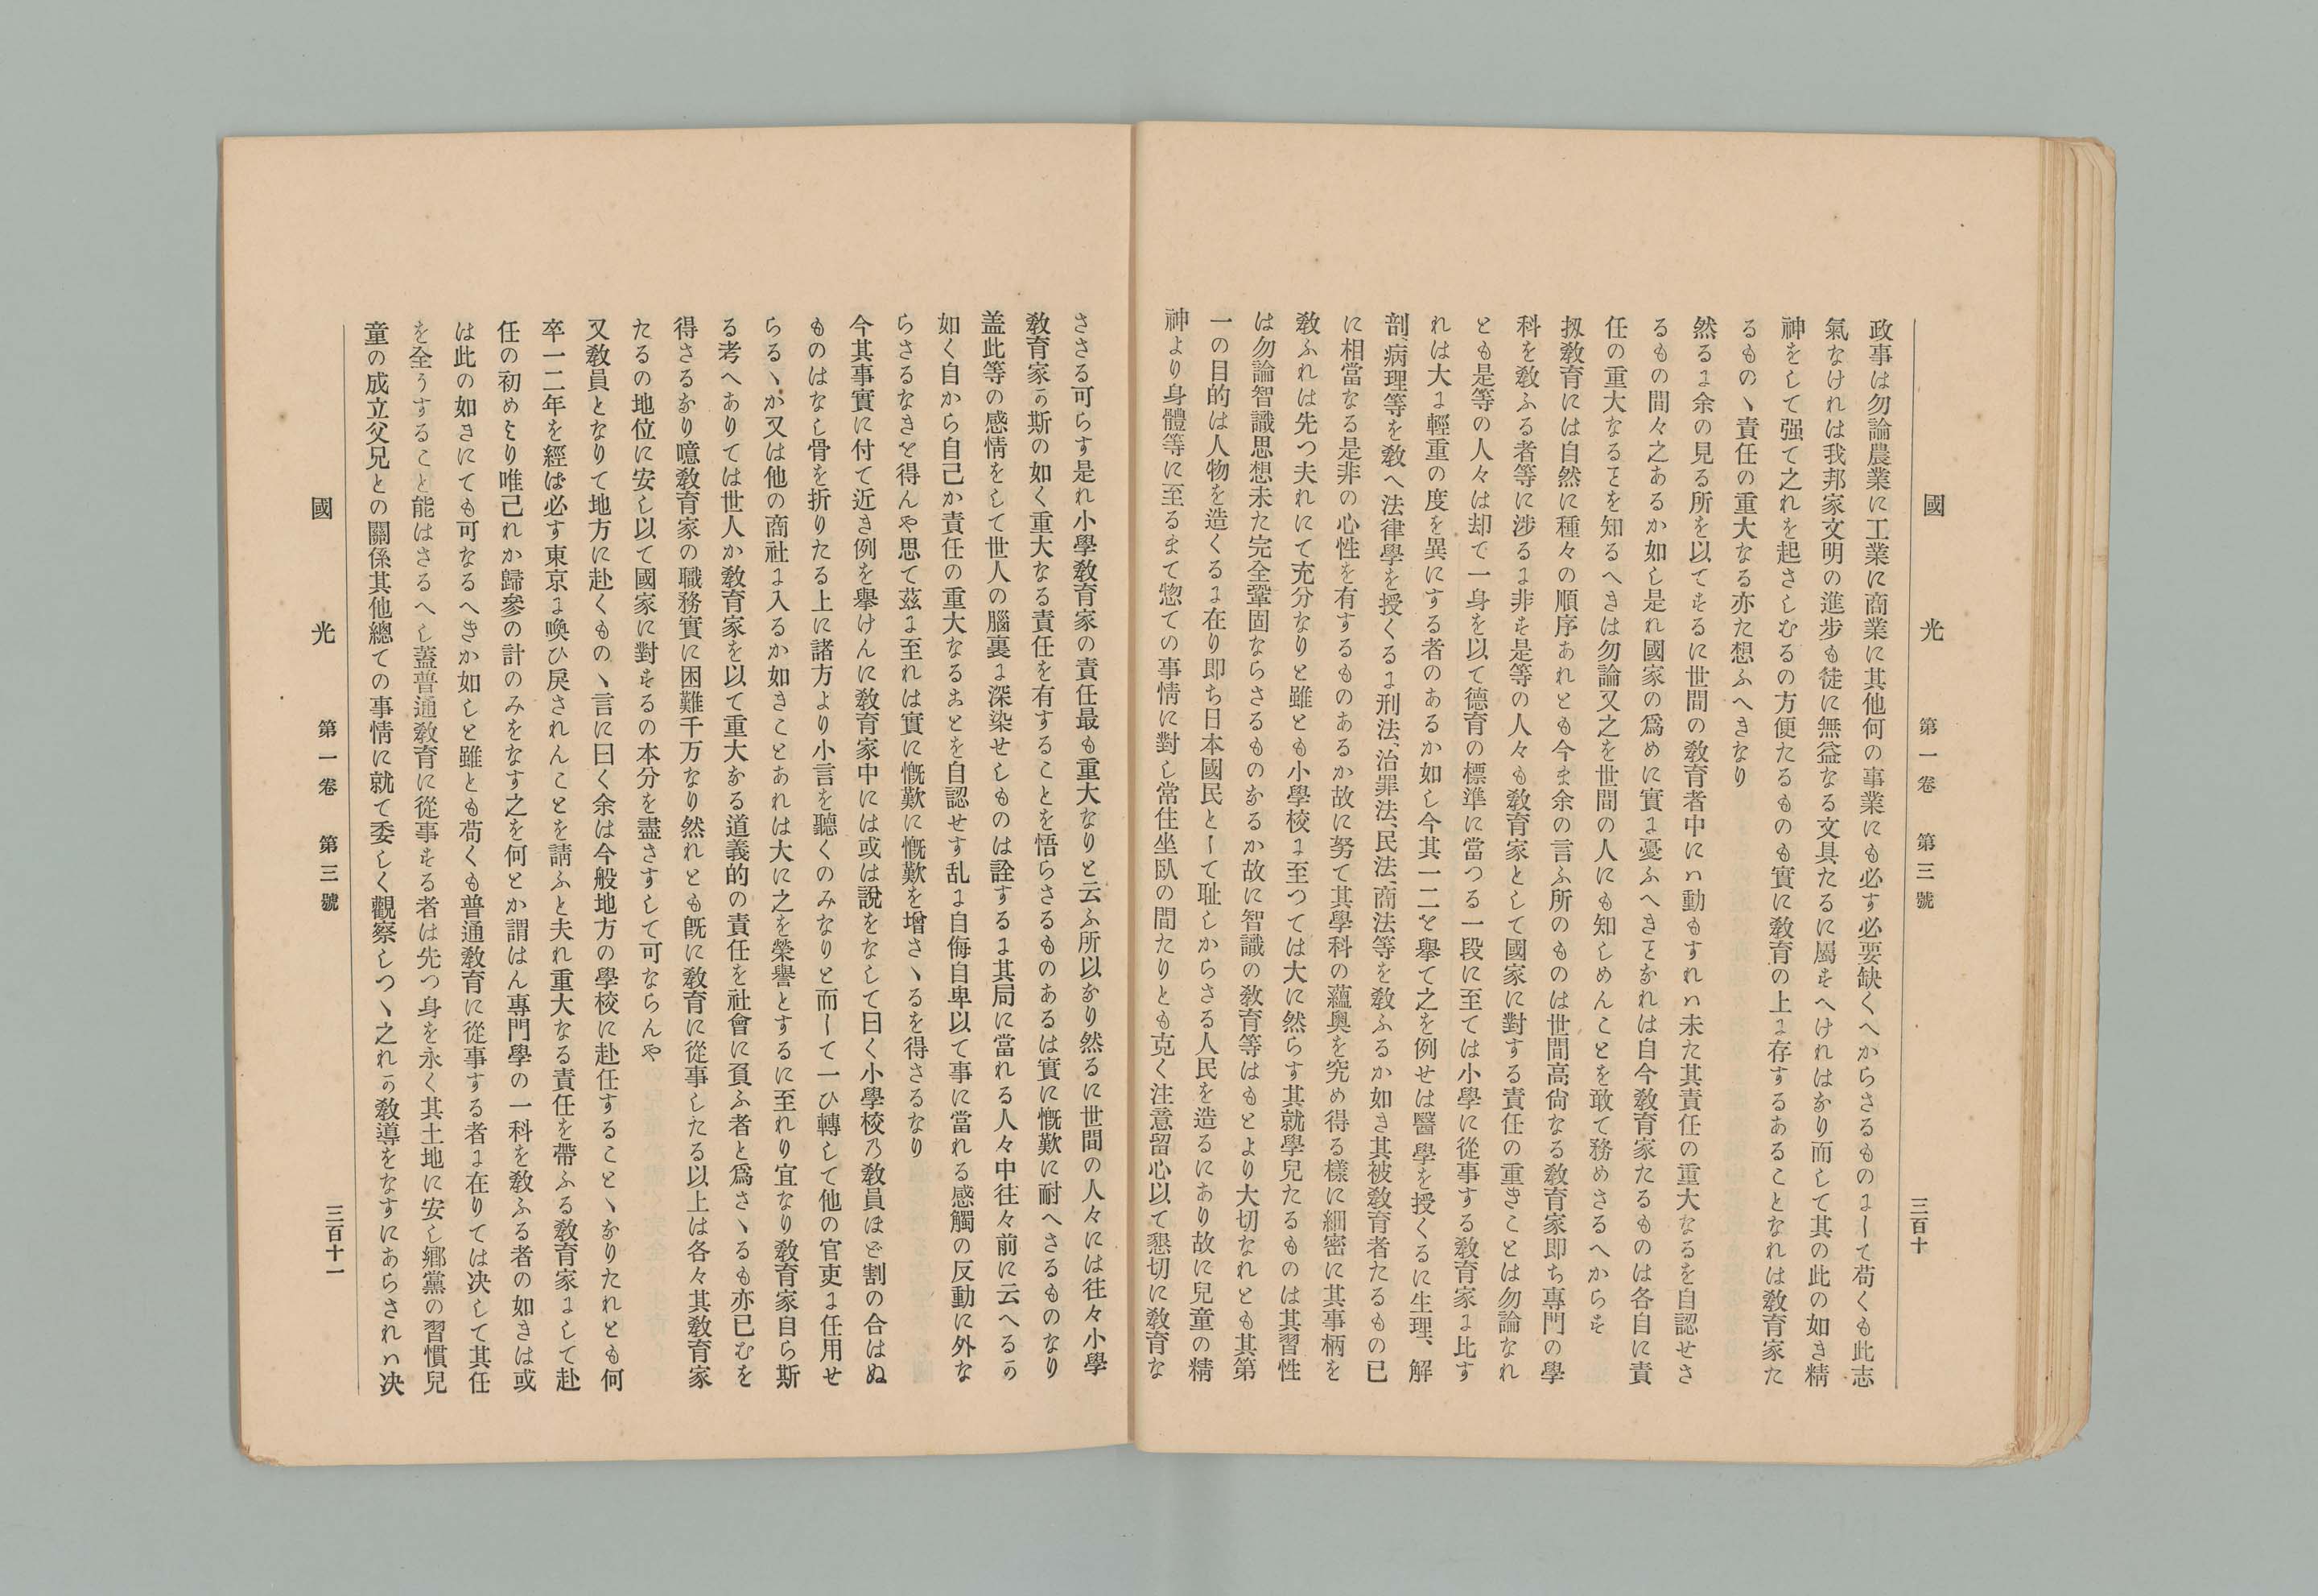 國光 第一卷 第三號 三百十
政事は勿論農業に工業に商業に其他何の事業にも必す必要缺くへからさるものにして苟くも此志
氣なけれは我邦家文明の進步も徒に無益なる文具たるに屬すへけれはなり而して其の此の如き精
神をして强て之れを起さしむるの方便たるものも實に敎育の上に存するあることなれは敎育家た
るものヽ責任の重大なる亦た想ふへきなり
然るに余の見る所を以てするに世間の敎育者中にハ動もすれハ未た其責任の重大なるを自認せさ
るもの間々之あるか如し是れ國家の爲めに實に憂ふへきヿなれは自今敎育家たるものは各自に責
任の重大なるヿを知るへきは勿論又之を世間の人にも知しめんことを敢て務めさるへからす
扨敎育には自然に種々の順序あれとも今ま余の言ふ所のものは世間高尙なる敎育家即ち專門の學
科を敎ふる者等に涉るに非す是等の人々も敎育家として國家に對する責任の重きことは勿論なれ
とも是等の人々は却て一身を以て德育の標準に當つる一段に至ては小學に從事する敎育家に比す
れは大に輕重の度を異にする者のあるか如し今其一二を擧て之を例せは醫學を授くるに生理、解
剖、病理等を敎へ法律學を授くるに刑法、治罪法、民法、商法等を敎ふるか如き其被敎育者たるもの已
に相當なる是非の心性を有するものあるか故に努て其學科の蘊奧を究め得る樣に細密に其事柄を
敎ふれは先つ夫れにて充分なりと雖とも小學校に至つては大に然らす其就學兒たるものは其習性
は勿論智識思想未た完全鞏固ならさるものなるか故に智識の敎育等はもとより大切なれとも其第
一の目的は人物を造くるに在り即ち日本國民として耻しからさる人民を造るにあり故に兒童の精
神より身體等に至るまて惣ての事情に對し常住坐臥の間たりとも克く注意留心以て懇切に敎育な
さゝる可らす是れ小學敎育家の責任最も重大なりと云ふ所以なり然るに世間の人々には往々小學
敎育家の斯の如く重大なる責任を有することを悟らさるものあるは實に慨歎に耐へさるものなり
盖此等の感情をして世人の腦裏に深染せしものは詮するに其局に當れる人々中往々前に云へるか
如く自から自己か責任の重大なるヿとを自認せす乱に自侮自卑以て事に當れる感觸の反動に外な
らさるなきを得んや思て茲に至れは實に慨歎に慨歎を增さヽるを得さるなり
今其事實に付て近き例を擧けんに敎育家中には或は說をなして曰く小學校乃敎員ほど割の合はぬ
ものはなし骨を折りたる上に諸方より小言を聽くのみなりと而して一ひ轉して他の官吏に任用せ
らるヽが又は他の商社に入るか如きことあれは大に之を榮譽とするに至れり宜なり敎育家自ら斯
る考へありては世人か敎育家を以て重大なる道義的の責任を社會に負ふ者と爲さヽるも亦已むを
得さるなり噫敎育家の職務實に困難千万なり然れとも旣に敎育に從事したる以上は各々其敎育家
たるの地位に安し以て國家に對するの本分を盡さすして可ならんや
又敎員となりて地方に赴くものヽ言に曰く余は今般地方の學校に赴任することヽなりたれとも何
卒一二年を經ば必す東京に喚ひ戾されんことを請ふと夫れ重大なる責任を帶ふる敎育家にして赴
任の初めより唯己れか歸參の計のみをなす之を何とか謂はん專門學の一科を敎ふる者の如きは或
は此の如きにても可なるへきか如しと雖とも苟くも普通敎育に從事する者に在りては决して其任
を全うすること能はさるへし蓋普通敎育に從事する者は先つ身を永く其土地に安し鄕黨の習慣兒
童の成立父兄との關係其他總ての事情に就て委しく觀察しつヽ之れか敎導をなすにあらされハ决
國光 第一卷 第三號 三百十一